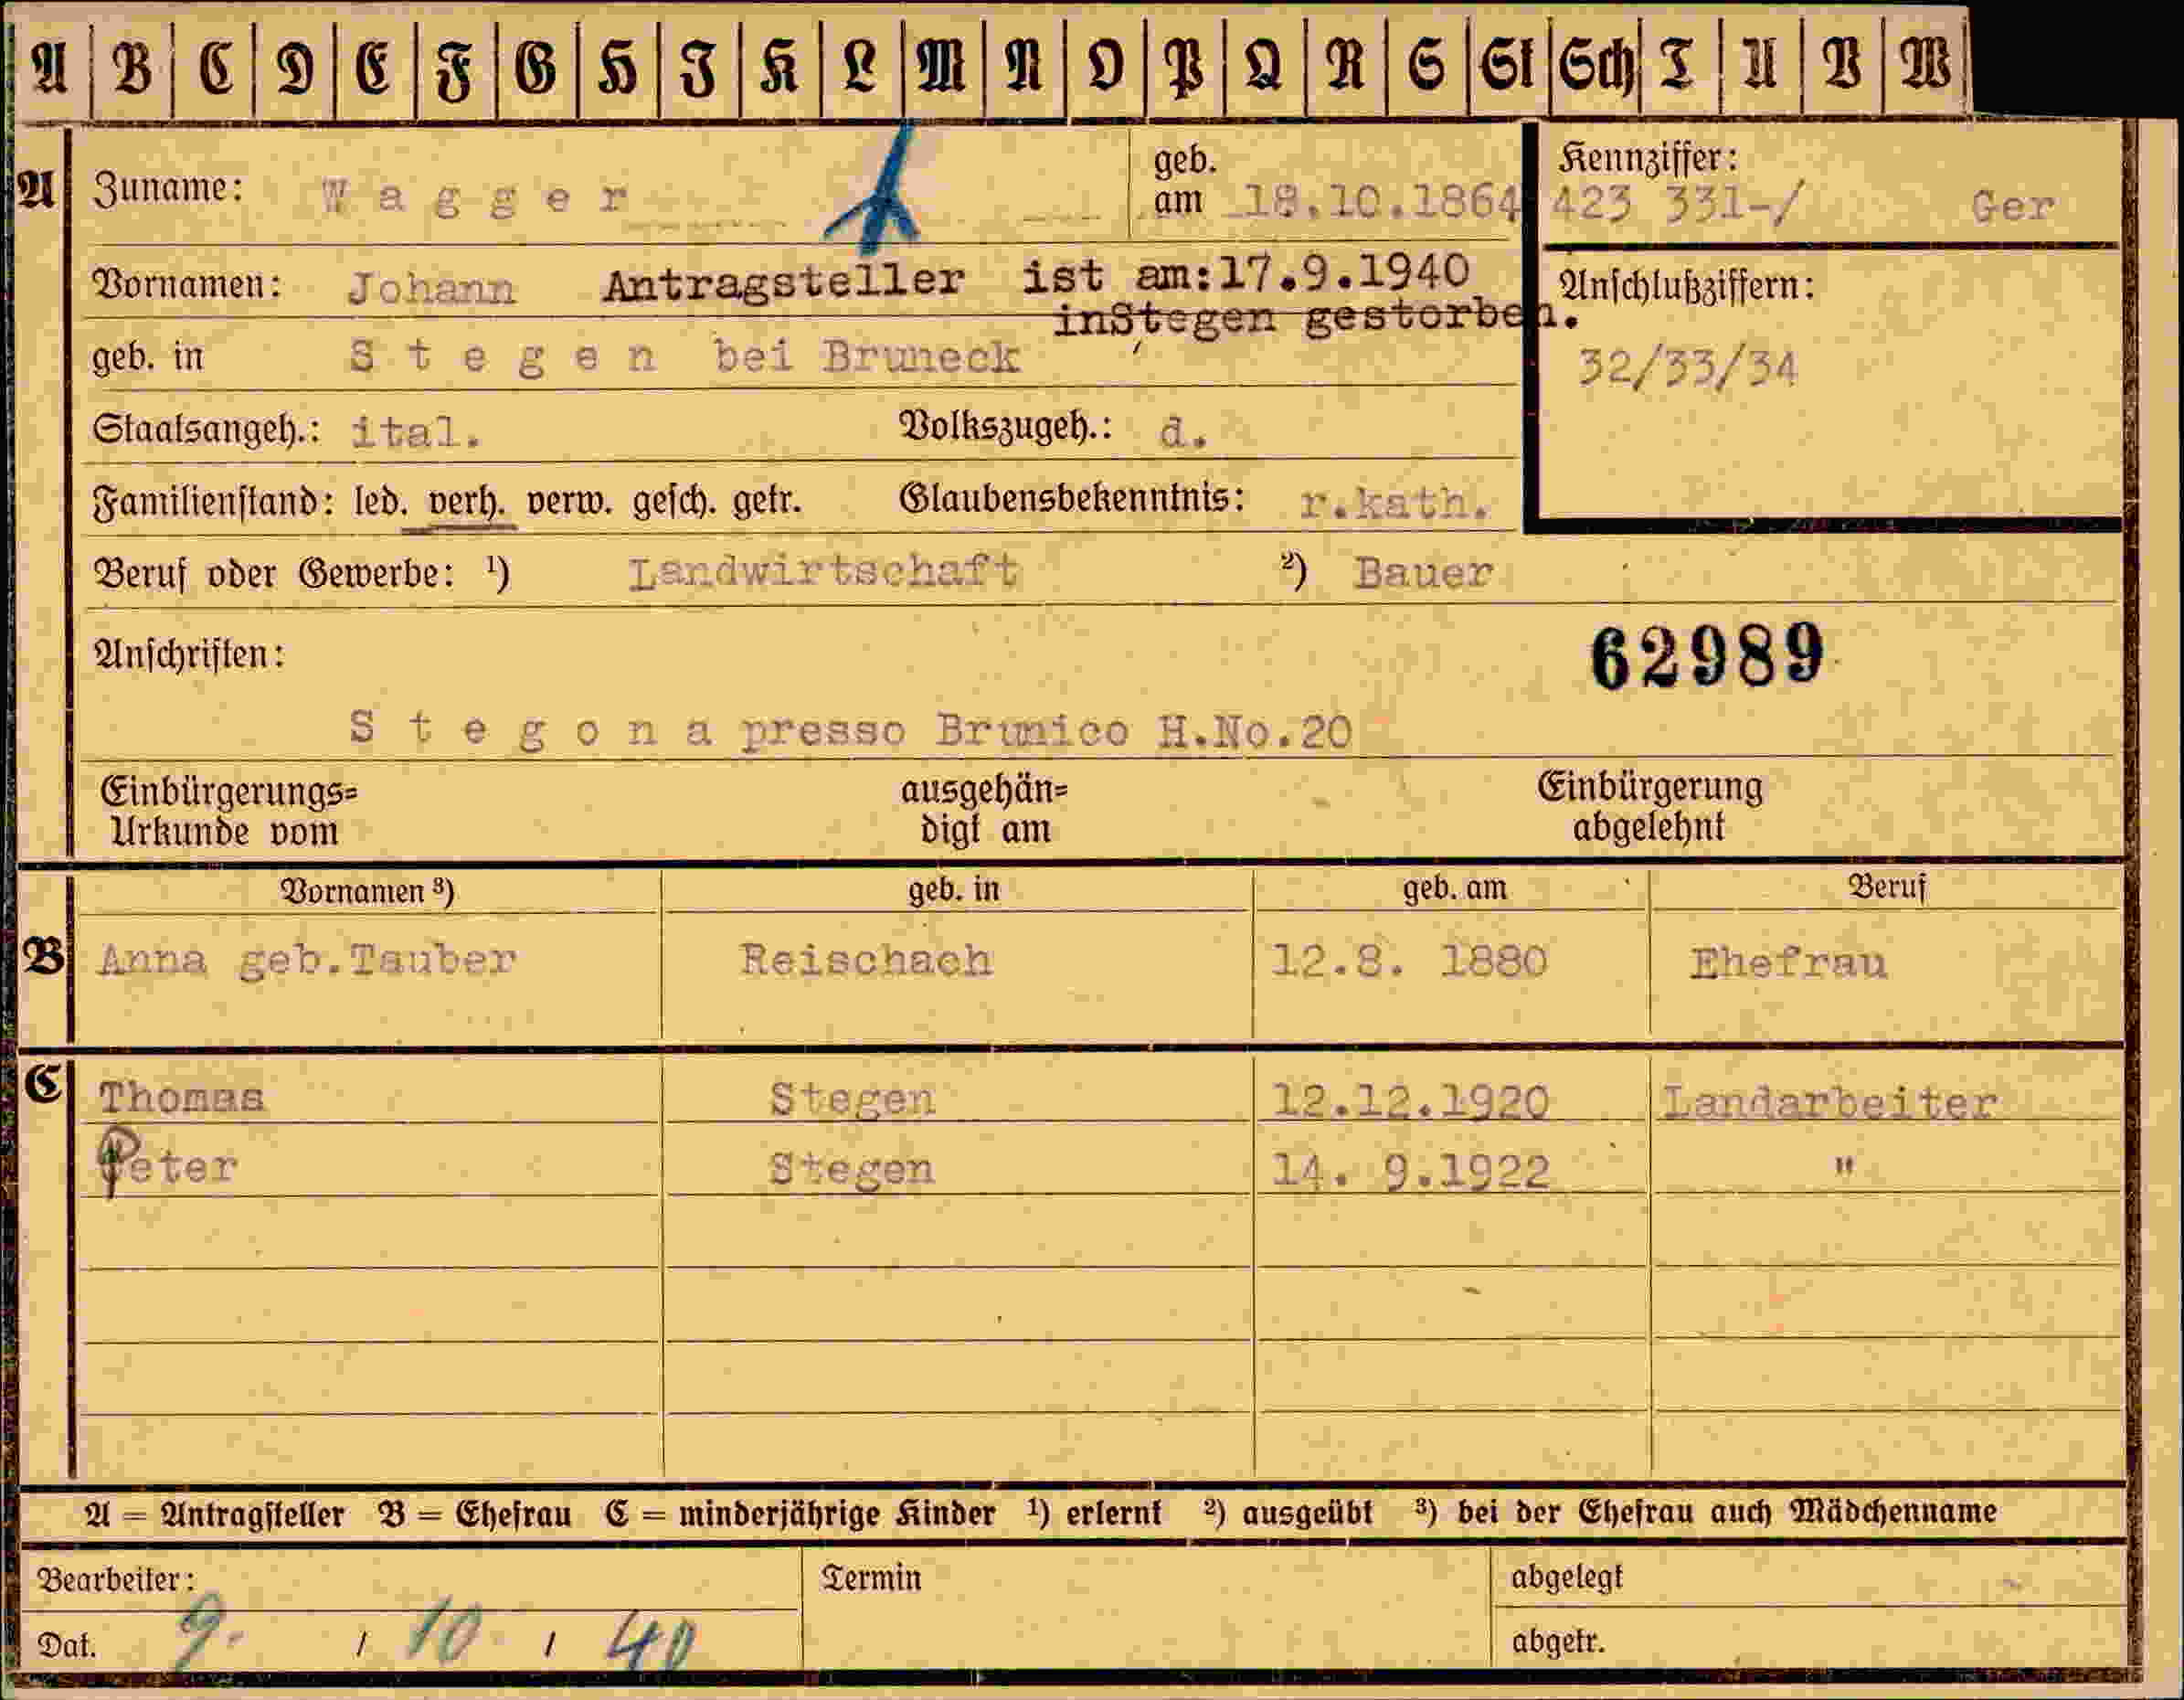 A B C D E F G H I K L M N O P Q R S St Sch T U V W
A Zuname: W a g g e r geb. am 18.10.1864 Kennziffer: 423 331-/ Ger
Vornamen: Johann Antragsteller ist am:17.9.1940 Anschlußziffern:
inStegen gestorben.
geb. in S t e g e n bei Bruneck 32/33/34
Staatsangeh.: ital. Volkszugeh.: d.
Familienstand: led. verh. verw. gesch. getr. Glaubensbekenntnis: r.kath.
Beruf oder Gewerbe: ¹) Landwirtschaft ²) Bauer
Anschriften: 62989
S t e g o n a presso Brunico H.No.20
Einbürgerungs= ausgehän= Einbürgerung
Urkunde vom digt am abgelehnt
Vornamen ³) geb. in geb. am Beruf
B Anna geb.Tauber Reischach 12.8. 1880 Ehefrau
C Thomas Stegen 12.12.1920 Landarbeiter
Peter Stegen 14. 9.1922 "
A = Antragsteller B = Ehefrau C = minderjährige Kinder ¹) erlernt ²) ausgeübt ³) bei der Ehefrau auch Mädchenname
Bearbeiter: Termin abgelegt
Dat. 9. / 10 / 40 abgetr.